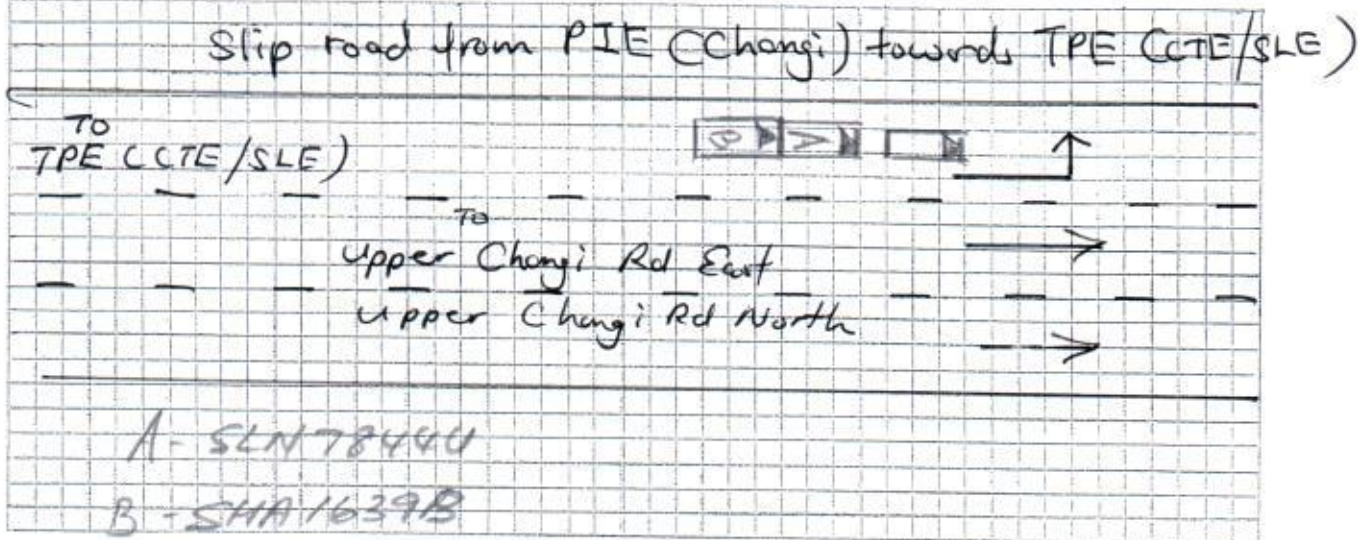 Slip road from PIE (Changi) towards TPE (CTE/SLE)
TO
TPE (CTE/SLE)
B A
TO
Upper Changi Rd East
Upper Changi Rd North
A - SLN7844U
B - SHA1639B